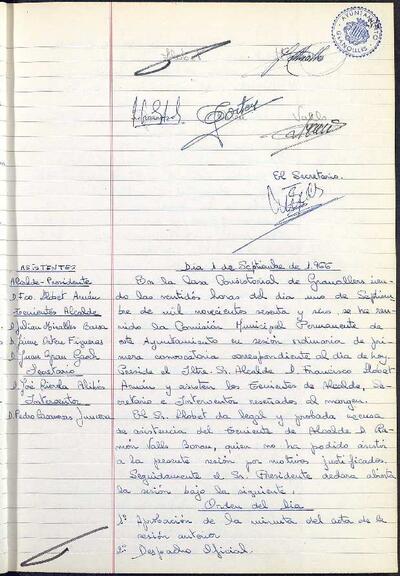 AYUNTAMIENTO
GRANOLLERS
El Secretario.
ASISTENTES
Alcalde-Presidente
D. Fco. Llobet Arnán
Tenientes Alcalde
D. Julian Miralles
D. Jaime Arteu Figueras
D. Juan Grau Goch
Secretario
D. José Rierola Alibés
Interventor
D. Pedro
Dia 1 de Septiembre de 1.966
En la Casa Consistorial de Granollers sien-
do las veintidós horas del dia uno de Septiem-
bre de mil novecientos sesenta y seis, se ha reu-
nido la Comisión Municipal Permanente de
este Ayuntamiento en sesión ordinaria de pri-
mera convocatoria correspondiente al dia de hoy.
Preside el Iltre. Sr. Alcalde D. Francisco Llobet
Arnán y asisten los Tenientes de Alcalde, Se-
cretario e Interventor reseñados al margen.
El Sr. Llobet da legal y probada excusa
de asistencia del Teniente de Alcalde D. Ra-
món Valls, quien no ha podido asistir
a la presente sesión por motivos justificados.
Seguidamente el Sr. Presidente declara abierta
la sesión bajo la siguiente,
Orden del dia
1º Aprobación de la minuta del acta de la
sesión anterior
2º Despacho Oficial.